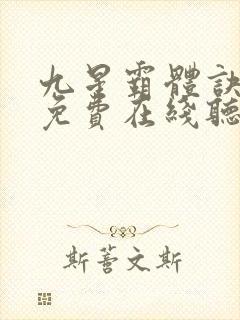 九星霸體訣
免費在綫聽
斯文斯